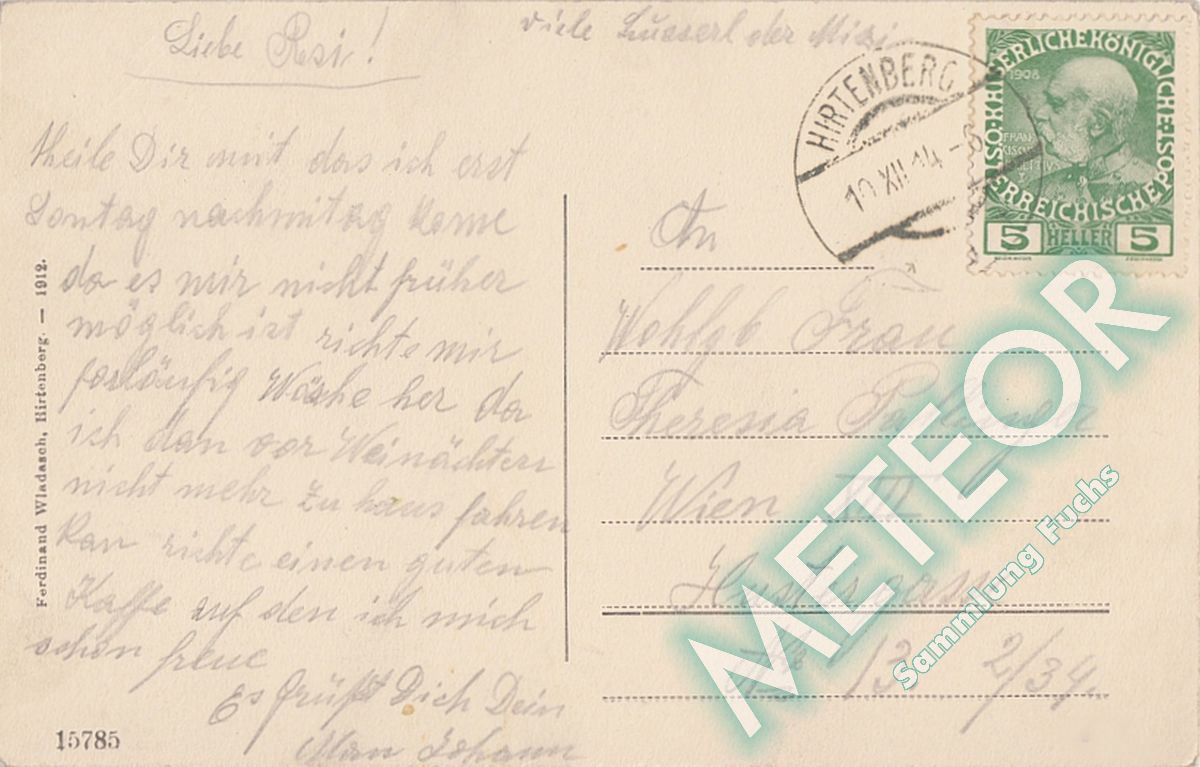 Liebe Resi!
viele Busserl der Mizi
theile Dir mit das ich erst
Sontag nachmitag kome
da es mir nicht früher
möglich ist richte mir
forläufig Wäshe her da
ich dan vor Weinächten
nicht mehr zu haus fahren
kan richte einen guten
Kaffe auf den ich mich
schon freue
Es grüßt Dich Dein
Man Johann
15785
Ferdinand Wladasch, Hirtenberg. — 1912.
HIRTENBERG
10 XII 14 - 6
KAISERLICHE KÖNIGLICHE
ÖSTERREICHISCHE POST
1908
5 HELLER 5
An
Wohlgb Frau
Theresia
Wien
13 2/34
METEOR
Sammlung Fuchs